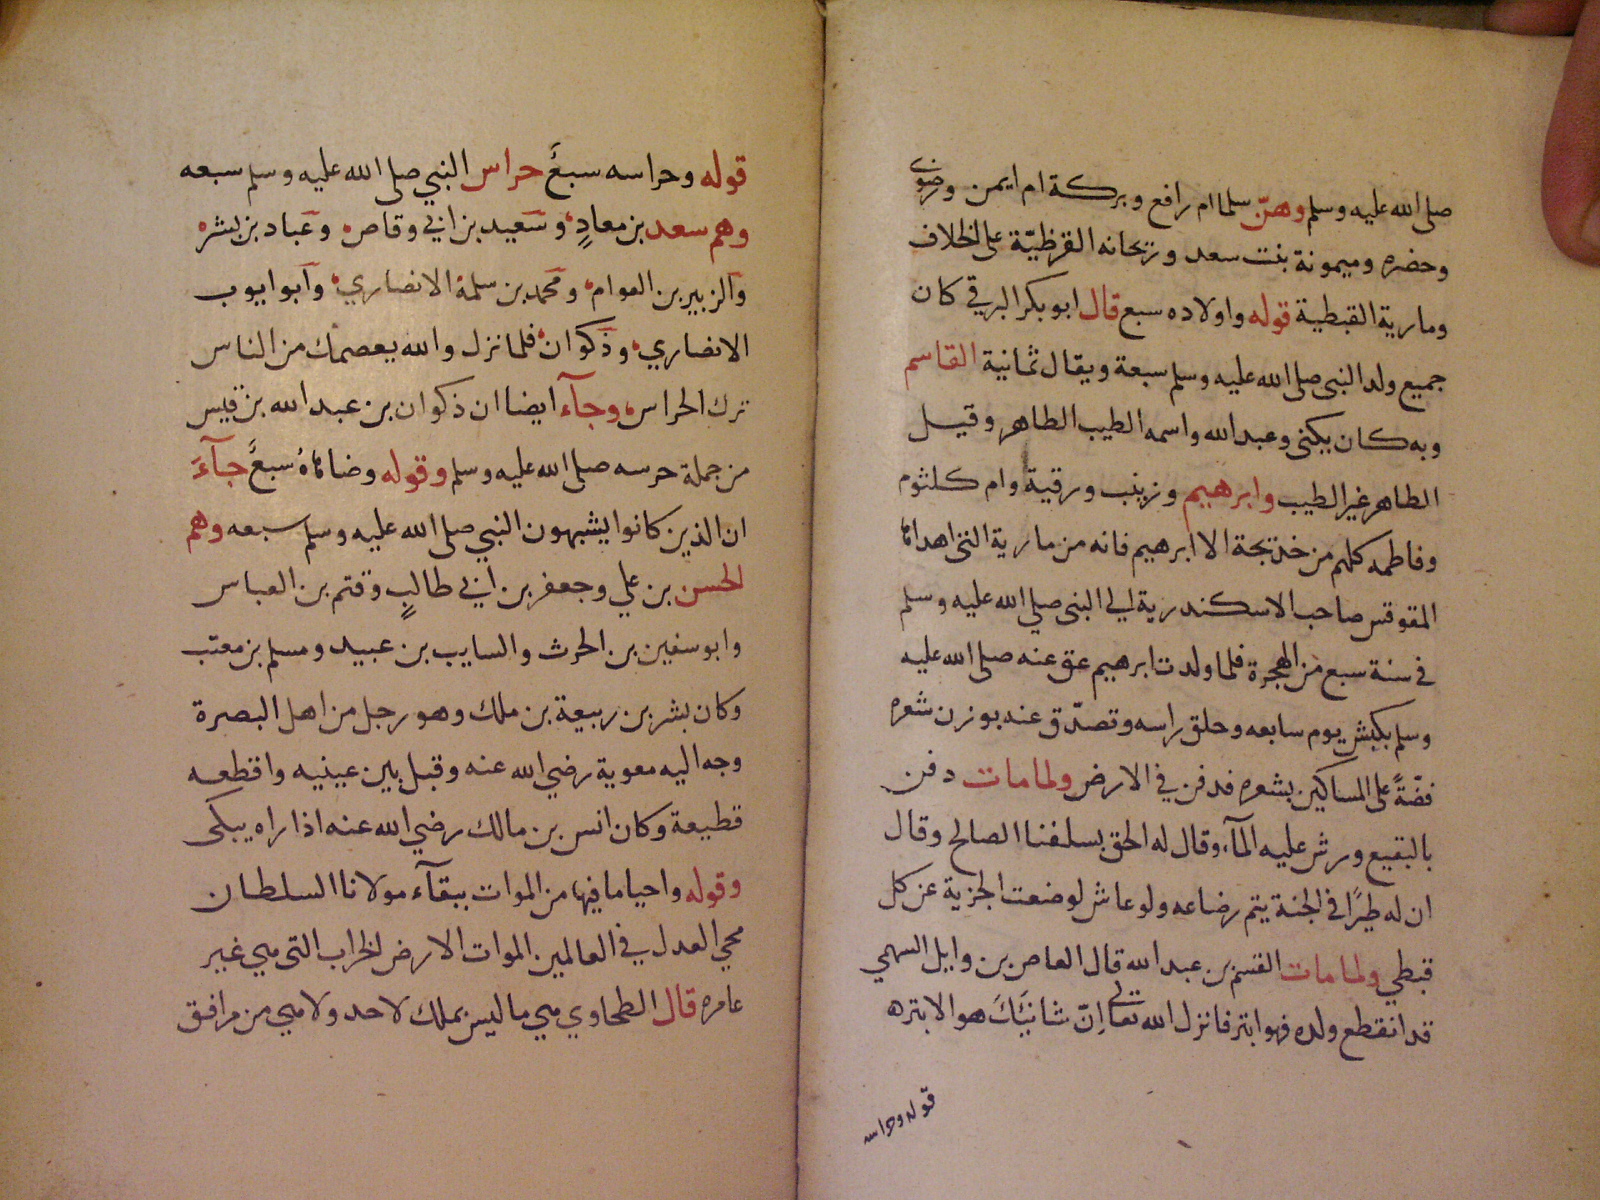 صلى الله عليه وسلم وهنّ سلما ام رافع وبركة ام ايمن ورضوى
وخضره وميمونة بنت سعد وريحانه القرظيّة على الخلاف
ومارية القبطية قوله واولاده سبع قال ابو بكر البرقي كان
جميع ولد النبى صلى الله عليه وسلم سبعة ويقال ثمانية القاسم
وبه كان يكنى وعبد الله واسمه الطيب الطاهر وقيل
الطاهر غير الطيب وابرهيم وزينب ورقية وام كلثوم
وفاطمه كلهم من خديجة الا ابرهيم فانه من مارية التى اهداها
المقوقس صاحب الاسكندرية الى النبى صلى الله عليه وسلم
فى سنة سبع من الهجرة فلما ولدت ابرهيم عق عنه صلى الله عليه
وسلم بكبش يوم سابعه وحلق راسه وتصدّق عنه بوزن شعره
فضّةً على المساكين بشعره فدفن في الارض ولما مات دفن
بالبقيع ورش عليه المآء وقال له الحق بسلفنا الصالح وقال
ان له ظيرًا فى الجنة يتم رضاعه ولو عاش لوضعت الجزية عن كل
قبطي ولما مات القسم بن عبد الله قال العاص بن وايل السهمي
قد انقطع ولده فهو ابتر فانزل الله تعالى اِنّ شانيَكَ هو الابتره
قوله وحراسه
قوله وحراسه سبعً حراس النبي صلى الله عليه وسلم سبعه
وهم سعد بن معاذٍ وسعيد بن ابي وقاص وعباد بن بشر
والزبير بن العوام ومحمد بن سلمة الانصاري وابو ايوب
الانصاري وذكوان فلما نزل والله يعصمك من الناس
ترك الحراس وجآء ايضا ان ذكوان بن عبد الله بن قيس
من جملة حرسه صلى الله عليه وسلم وقوله وضاهاهُ سبعً جآءَ
ان الذين كانوا يشبهون النبي صلى الله عليه وسلم سبعه وهم
الحسن بن علي وجعفر بن ابي طالبٍ وقثم بن العباس
وابو سفين بن الحرث والسايب بن عبيد ومسلم بن معتب
وكان بشر بن ربيعة بن ملك وهو رجل من اهل البصرة
وجه اليه معوية رضي الله عنه وقبل بين عينيه واقطعه
قطيعة وكان انس بن مالك رضي الله عنه اذا راه يبكى
وقوله واحيا ما فيها من الموات ببقآء مولانا السلطان
محي العدل في العالمين الموات الارض الخراب التى هي غير
عامره قال الطحاوي هي ما ليس بملك لاحد ولا هي من مرافق